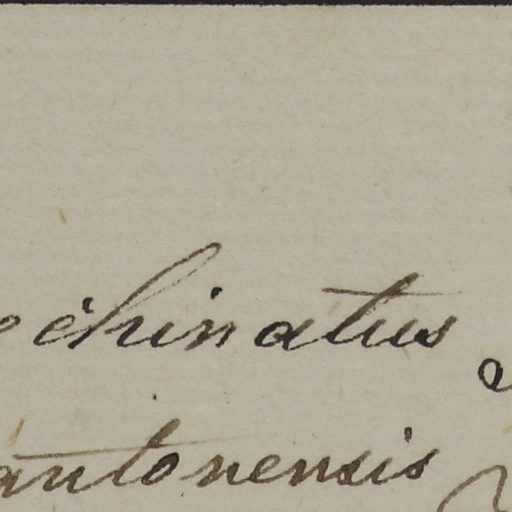 echinatus
antonensis